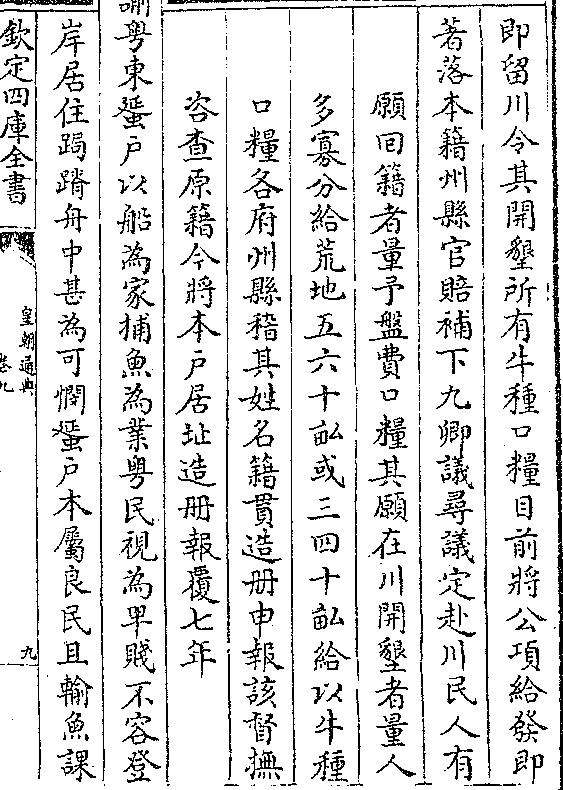 即留川令其開墾所有牛種口糧目前將公項給發即
著落本籍州縣官賠補下九卿議尋議定赴川民人有
願回籍者量予盤費口糧其願在川開墾者量人
多寡分給荒地五六十畝或三四十畝給以牛種
口糧各府州縣稽其姓名籍貫造册申報該督撫
咨查原籍令將本戶居址造册報覆七年
諭粤東蜑戶以船為家捕魚為業粤民視為卑賤不容登
岸居住跼蹐舟中甚為可憫蜑戶本屬良民且輸魚課
欽定四庫全書
皇朝通典
卷九
九